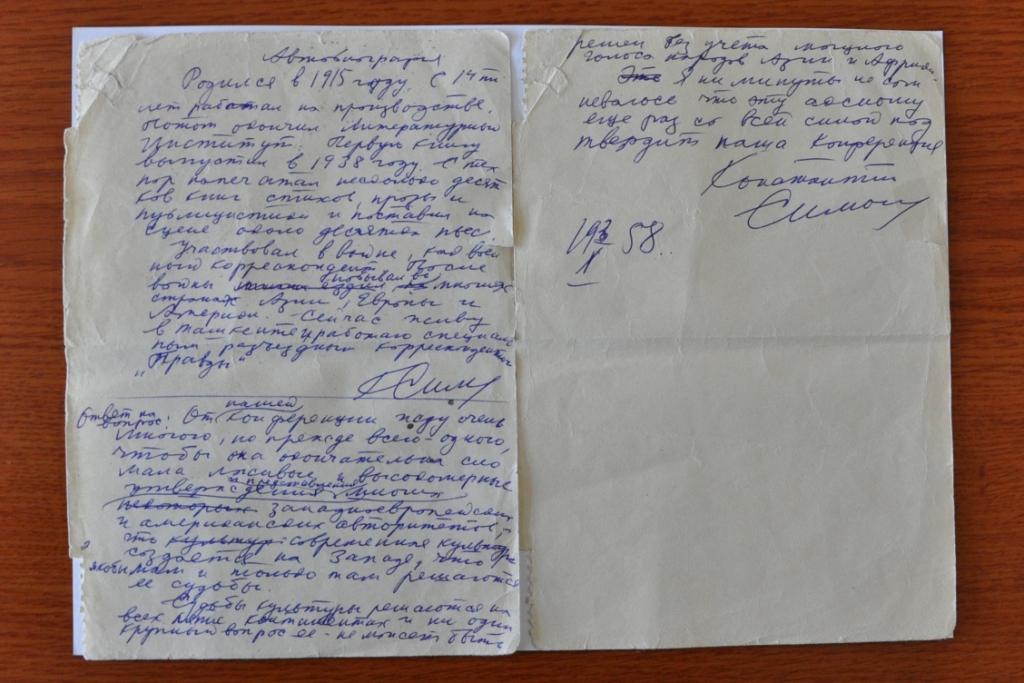 Автобиография
Родился в 1915 году. С 14 ти
лет работал на производстве.
Потом окончил Литературный
Институт. Первую книгу
выпустил в 1938 году. С тех
пор напечатал несколько десят
ков книг стихов, прозы и
публицистики и поставил на
сцене около десятка пьес.
Участвовал в войне, как воен
ный корреспондент. После
войны побывал во многих
странах Азии, Европы и
Америки. Сейчас живу
в Ташкенте и работаю специаль
ным разъездным корреспондентом
"Правды"
КСим
Ответ на
вопрос: От нашей конференции жду очень
многого, но прежде всего - одного,
чтобы она окончательно сло
мала лживые и высокомерные
утверждения и представления многих
некоторых западноевропейских
и американских авторитетов,
что культур современная культура
создается на Западе, что
якобы там и только там решаются
ее судьбы.
Судьбы культуры решаются на
всех пяти континентах и ни один
крупный вопрос ее - не может быть
решен без учета мощного
голоса народов Азии и Африки.
Это Я ни минуты не сом
неваюсь что эту аксиому
еще раз со всей силой под
твердит наша Конференция
Константин
Симонов
58